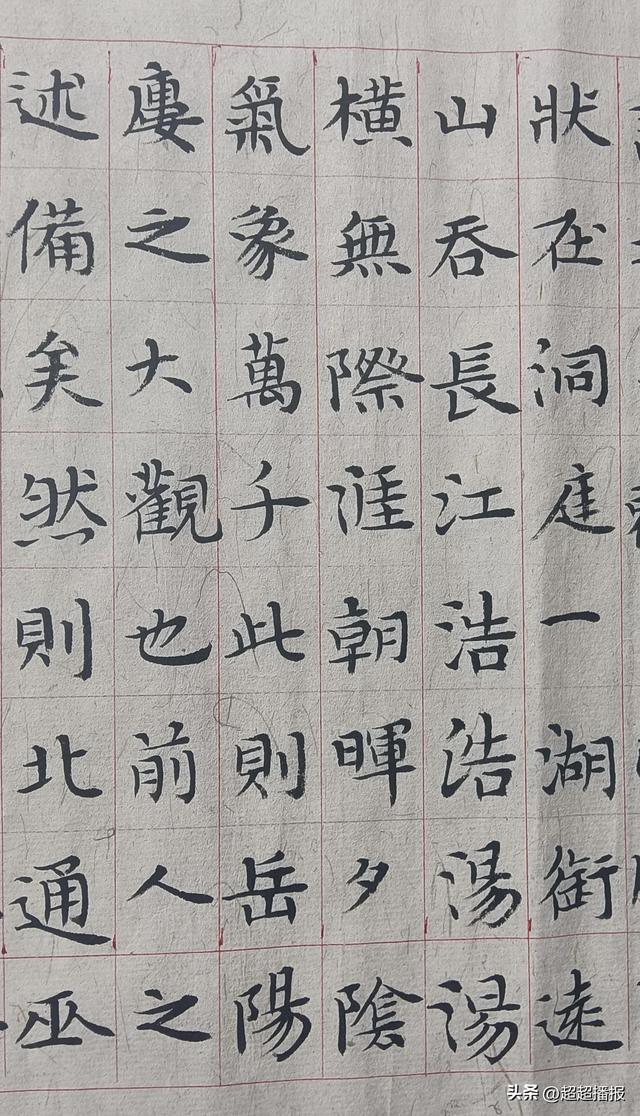 狀在洞庭一湖銜遠
山吞長江浩浩湯湯
橫無際涯朝暉夕陰
氣象萬千此則岳陽
廔之大觀也前人之
述備矣然則北通巫
头条 @超超播报